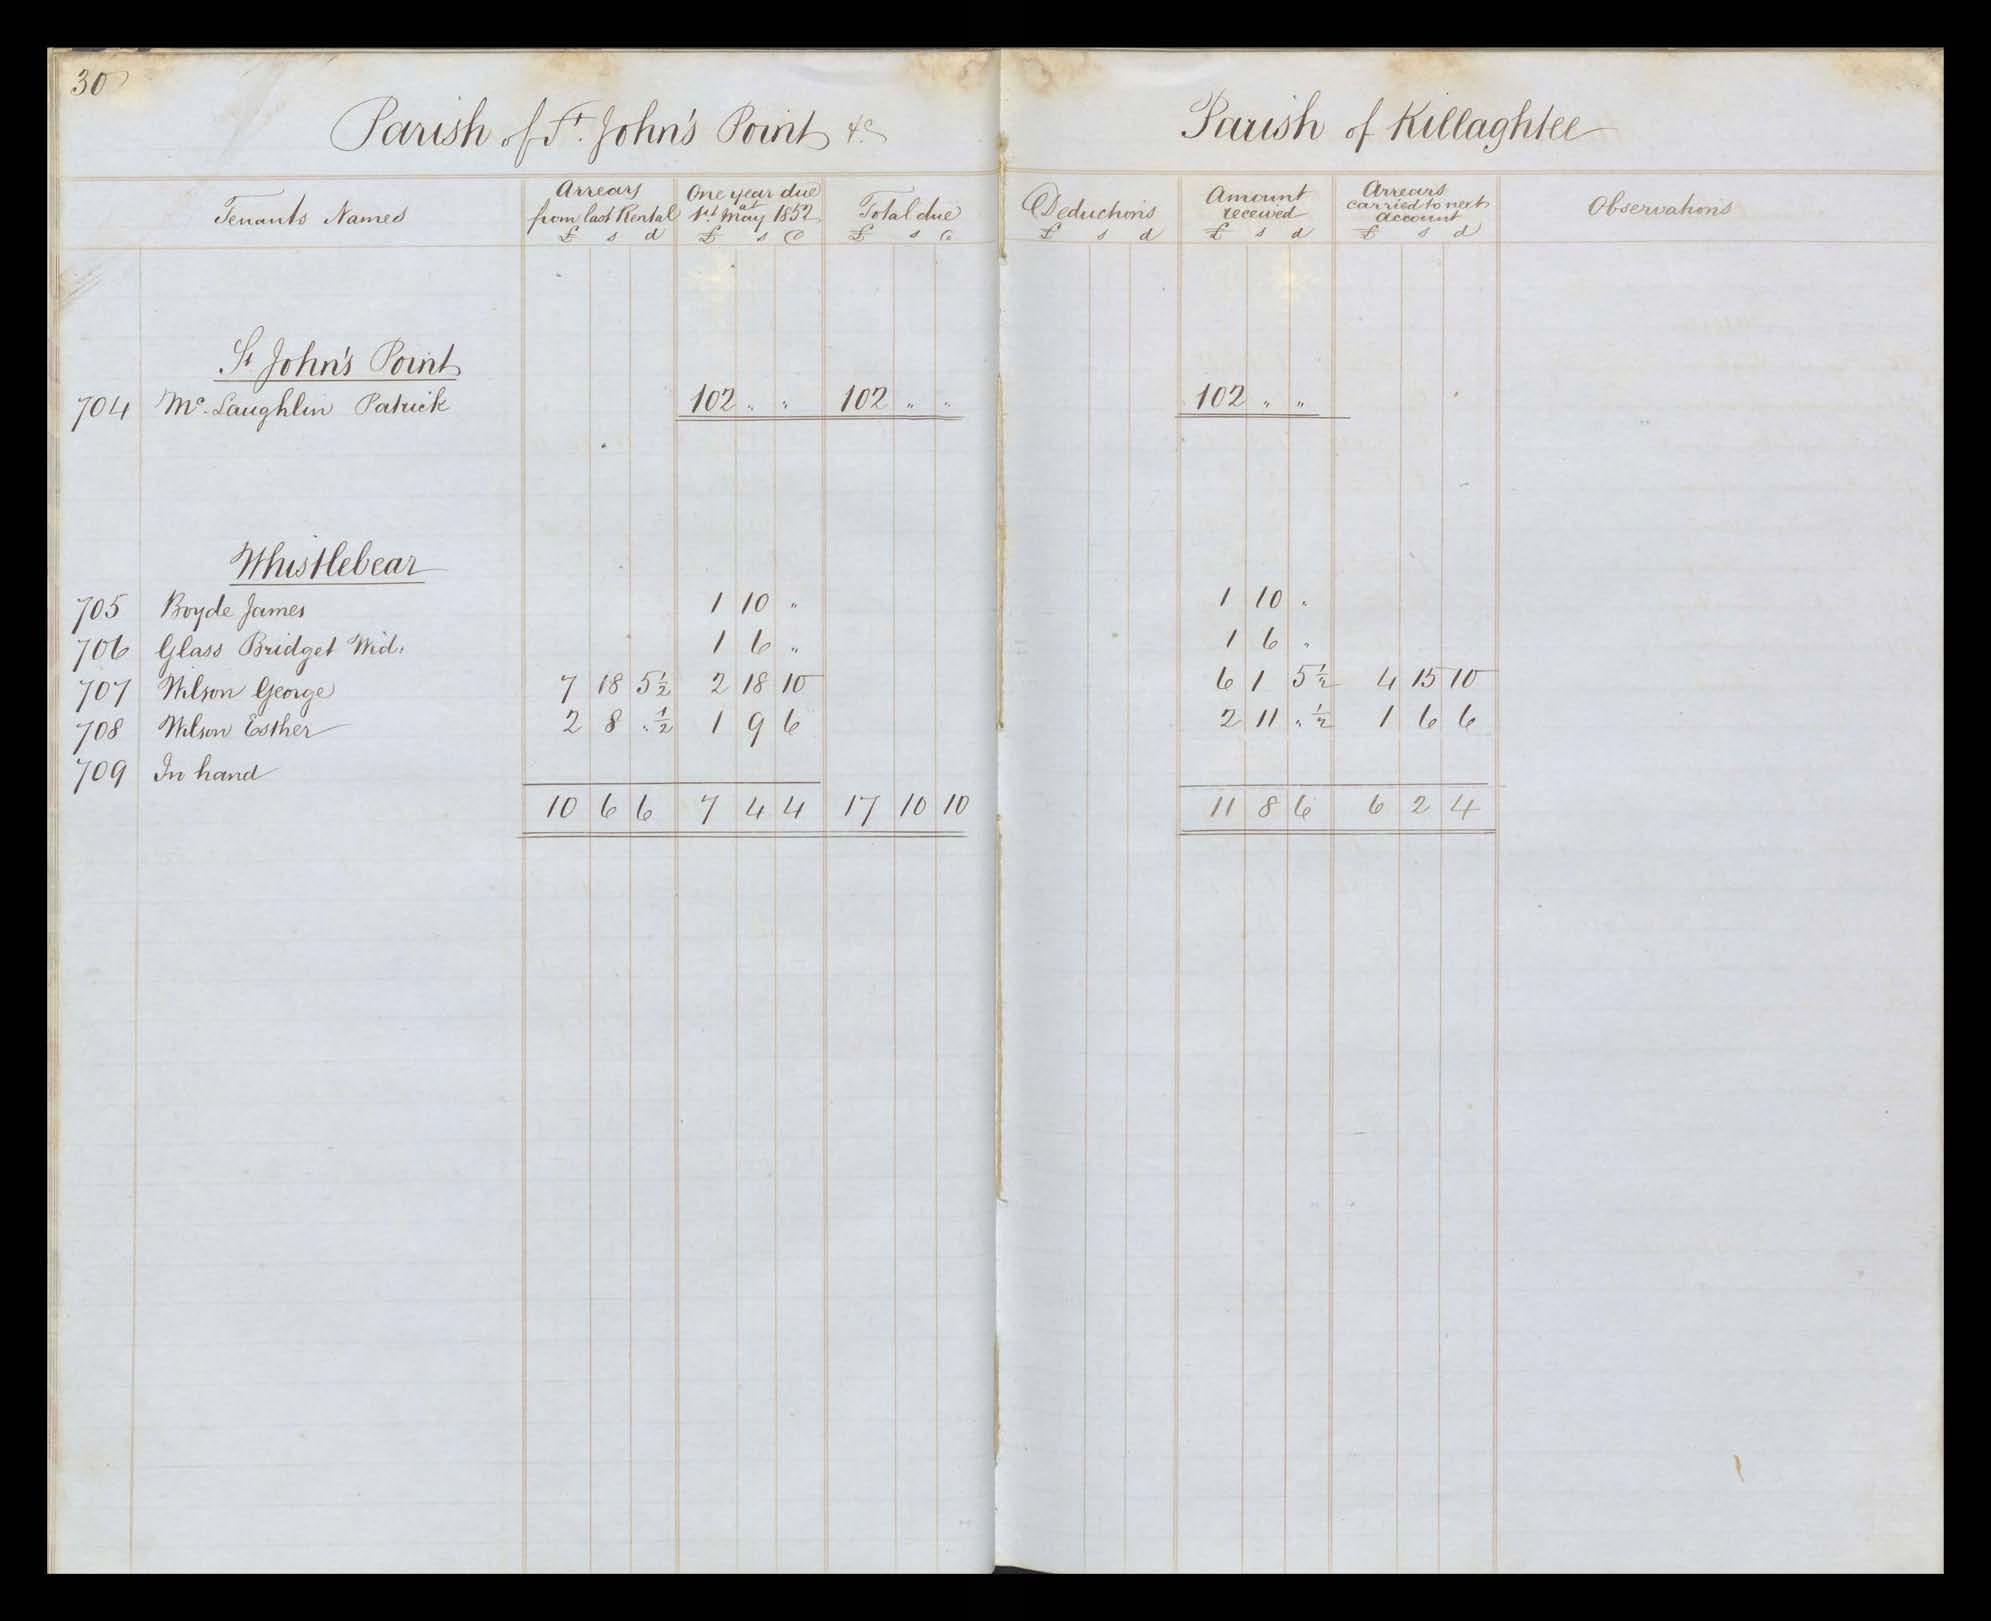 30
Parish of St. John's Point &c
Parish of Killaghtee
Tenants Names
Arrears from last Rental £ s d
One year due at 1st May 1852 £ s d
Total due £ s d
Deductions £ s d
Amount received £ s d
Arrears carried to next account £ s d
Observations
St John's Point
704 Mc. Laughlin Patrick 102 " " 102 " " 102 " "
Whistlebear
705 Boyde James 1 10 " 1 10 "
706 Glass Bridget Wid. 1 6 " 1 6 "
707 Wilson George 7 18 5½ 2 18 10 6 1 5½ 4 15 10
708 Wilson Esther 2 8 "½ 1 9 6 2 11 "½ 1 6 6
709 In hand
10 6 6 7 4 4 17 10 10 11 8 6 6 2 4